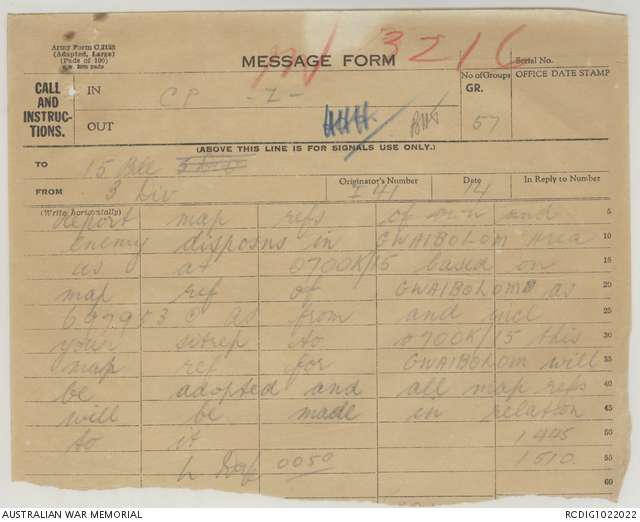 Army Form C.2128
(Adapted, Large)
(Pads of 100)
MESSAGE FORM
3216
Serial No.
CALL AND INSTRUC-TIONS.
IN CP -Z-
No of Groups GR. 57
OFFICE DATE STAMP
OUT
(ABOVE THIS LINE IS FOR SIGNALS USE ONLY.)
TO 15 Bde
FROM 3 Div
Originator's Number I 41
Date 14
In Reply to Number
(Write horizontally)
report map refs of own and 5
enemy disposns in GWAIBOLOM area 10
as at 0700K/15 based on 15
map ref of GWAIBOLOM as 20
697953 as from and incl 25
your sitrep to 0700K/15 this 30
map ref for GWAIBOLOM will 35
be adopted and all map refs 40
will be made in relation 45
to it 1445 50
0050 1510 55
60
AUSTRALIAN WAR MEMORIAL
RCDIG1022022